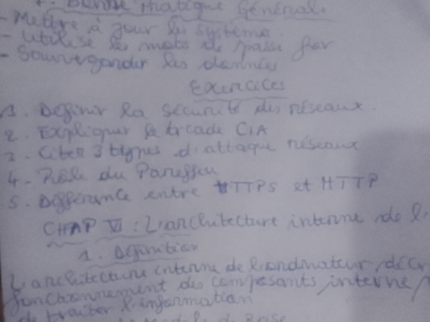 Bonne Pratique Générale
- Mettre à jour le système.
- Utilisé les mots de passe for
- Sauvegarder les données
Exercices
1. Définir la sécurité des réseaux.
2. Expliquer la triade CIA
3. Citer 3 types d'attaque réseaux
4 - Rôle du Parefeu
5. Différence entre HTTPS et HTTP
CHAP VI : L'architecture interne de l'
1. Définition
L'architecture interne de l'ordinateur, décr
fonctionnement des composants interne,
de traiter l'information
de Base